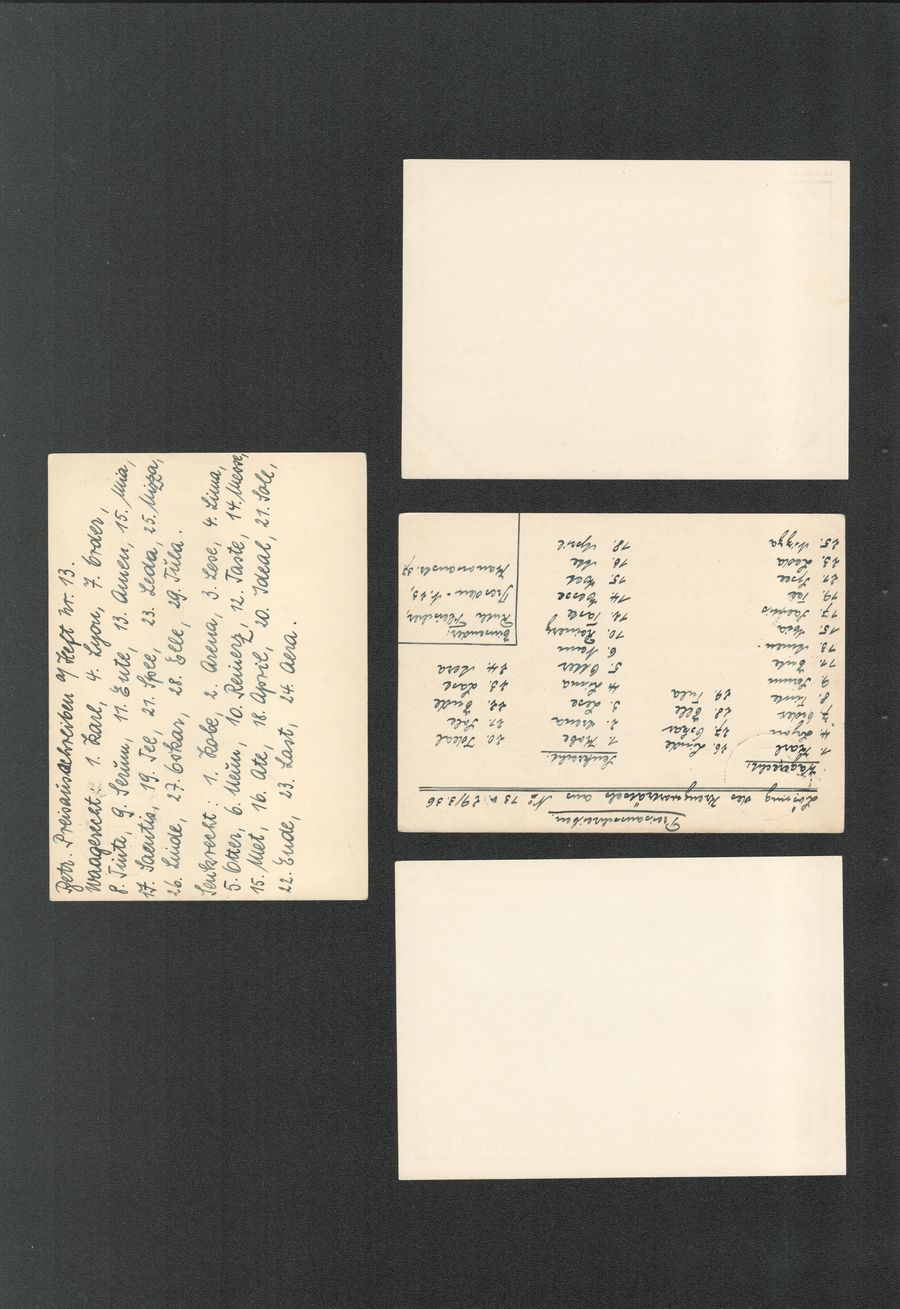 Betr. Preisausschreiben a/ Heft Nr. 13.
Waagerecht: 1. Karl, 4. Lyon, 7. Order,
8. Tinte, 9. Serum, 11. Eute, 13. Amen, 15. Mia,
17. Saentis, 19. Tee, 21. Spee, 23. Leda, 25. Nizza,
26. Linde, 27. Oskar, 28. Elle, 29. Tula.
Senkrecht: 1. Kobe, 2. Arena, 3. Lese, 4. Lima,
5. Otter, 6. Neun, 10. Reinerz, 12. Taste, 14. Messe,
15. Met, 16. Ate, 18. April, 20. Ideal, 21. Sole,
22. Ende, 23. Last, 24. Aera.
Preisausschreiben.
Lösung des Kreuzworträtsels aus No 13 v. 29/3.36
Wagerecht:
1. Karl
4. Lyon
7. Order
8. Tinte
9. Serum
11.
13. Amen.
15. Mia
17. Saentis
19. Tee
21. Spee
23. Leda
25. Nizza
26. Linde
27. Oskar
28. Elle
29. Tula
Senkrecht:
1. Kobe
2. Arena
3. Lese
4. Lima
5. Otter
6. Neun
10. Reinerz
12. Taste
14. Messe
15. Met
16. Ate
18. April
20. Ideal
21. Sole
22. Ende
23. Last
24. Aera
Einsender:
Dresden - A. 23,